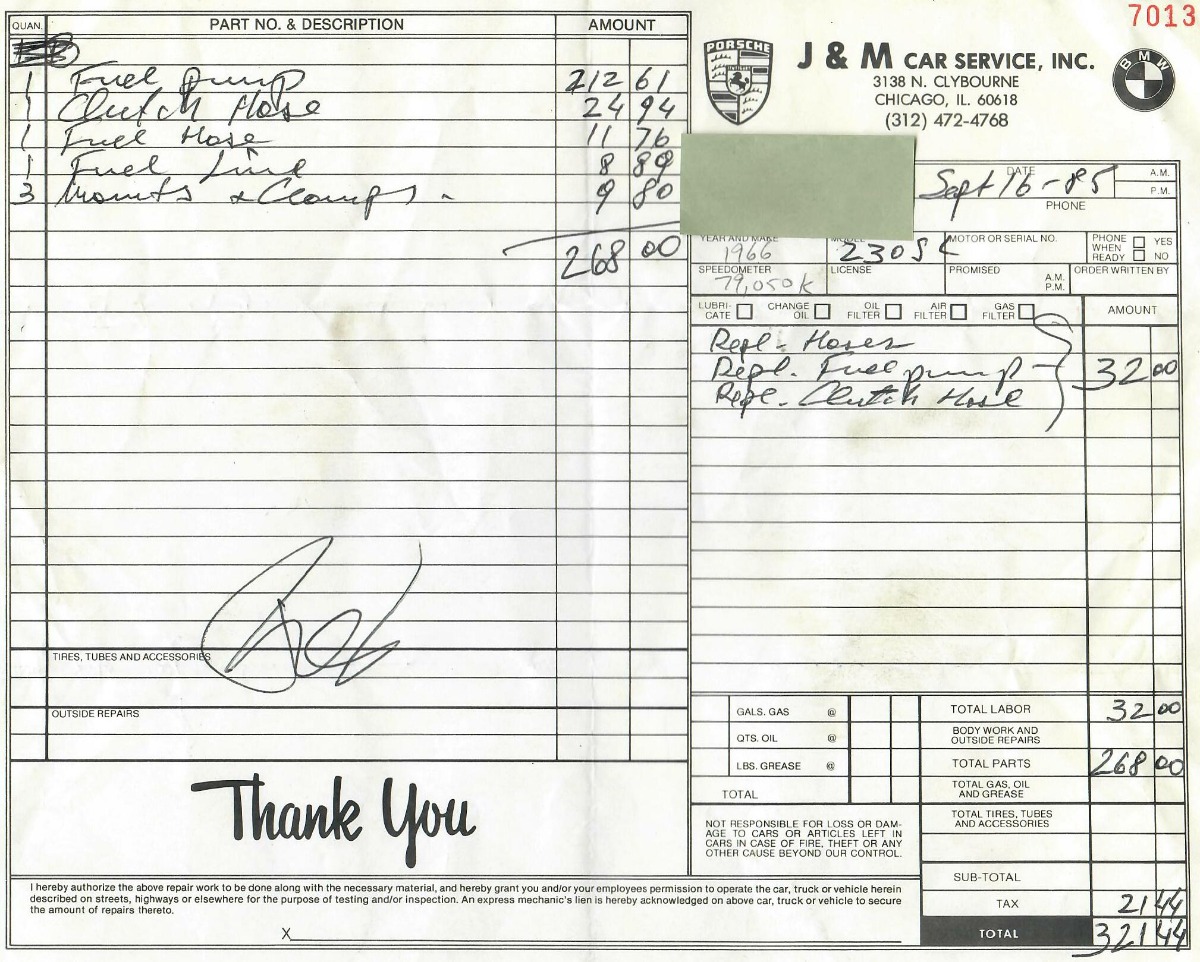 7013
QUAN. PART NO. & DESCRIPTION AMOUNT
1 Fuel pump 212 61
1 Clutch Hose 24 94
1 Fuel Hose 11 76
1 Fuel Line 8 89
3 Mounts & Clamps - 9 80
268 00
TIRES, TUBES AND ACCESSORIES
OUTSIDE REPAIRS
Thank You
PORSCHE
J & M CAR SERVICE, INC.
BMW
3138 N. CLYBOURNE
CHICAGO, IL. 60618
(312) 472-4768
DATE Sept 16-85 A.M.
P.M.
PHONE
YEAR AND MAKE 1966 MODEL 230SL MOTOR OR SERIAL NO. PHONE WHEN READY YES NO
SPEEDOMETER 79,050K LICENSE PROMISED A.M. P.M. ORDER WRITTEN BY
LUBRI-CATE CHANGE OIL OIL FILTER AIR FILTER GAS FILTER AMOUNT
Repl - Hoses
Repl. Fuel pump - 32 00
Repl - Clutch Hose
GALS. GAS @ TOTAL LABOR 32 00
QTS. OIL @ BODY WORK AND OUTSIDE REPAIRS
LBS. GREASE @ TOTAL PARTS 268 00
TOTAL TOTAL GAS, OIL AND GREASE
TOTAL TIRES, TUBES AND ACCESSORIES
NOT RESPONSIBLE FOR LOSS OR DAM-
AGE TO CARS OR ARTICLES LEFT IN
CARS IN CASE OF FIRE, THEFT OR ANY
OTHER CAUSE BEYOND OUR CONTROL.
SUB-TOTAL
TAX 21 44
TOTAL 321 44
I hereby authorize the above repair work to be done along with the necessary material, and hereby grant you and/or your employees permission to operate the car, truck or vehicle herein
described on streets, highways or elsewhere for the purpose of testing and/or inspection. An express mechanic's lien is hereby acknowledged on above car, truck or vehicle to secure
the amount of repairs thereto.
X